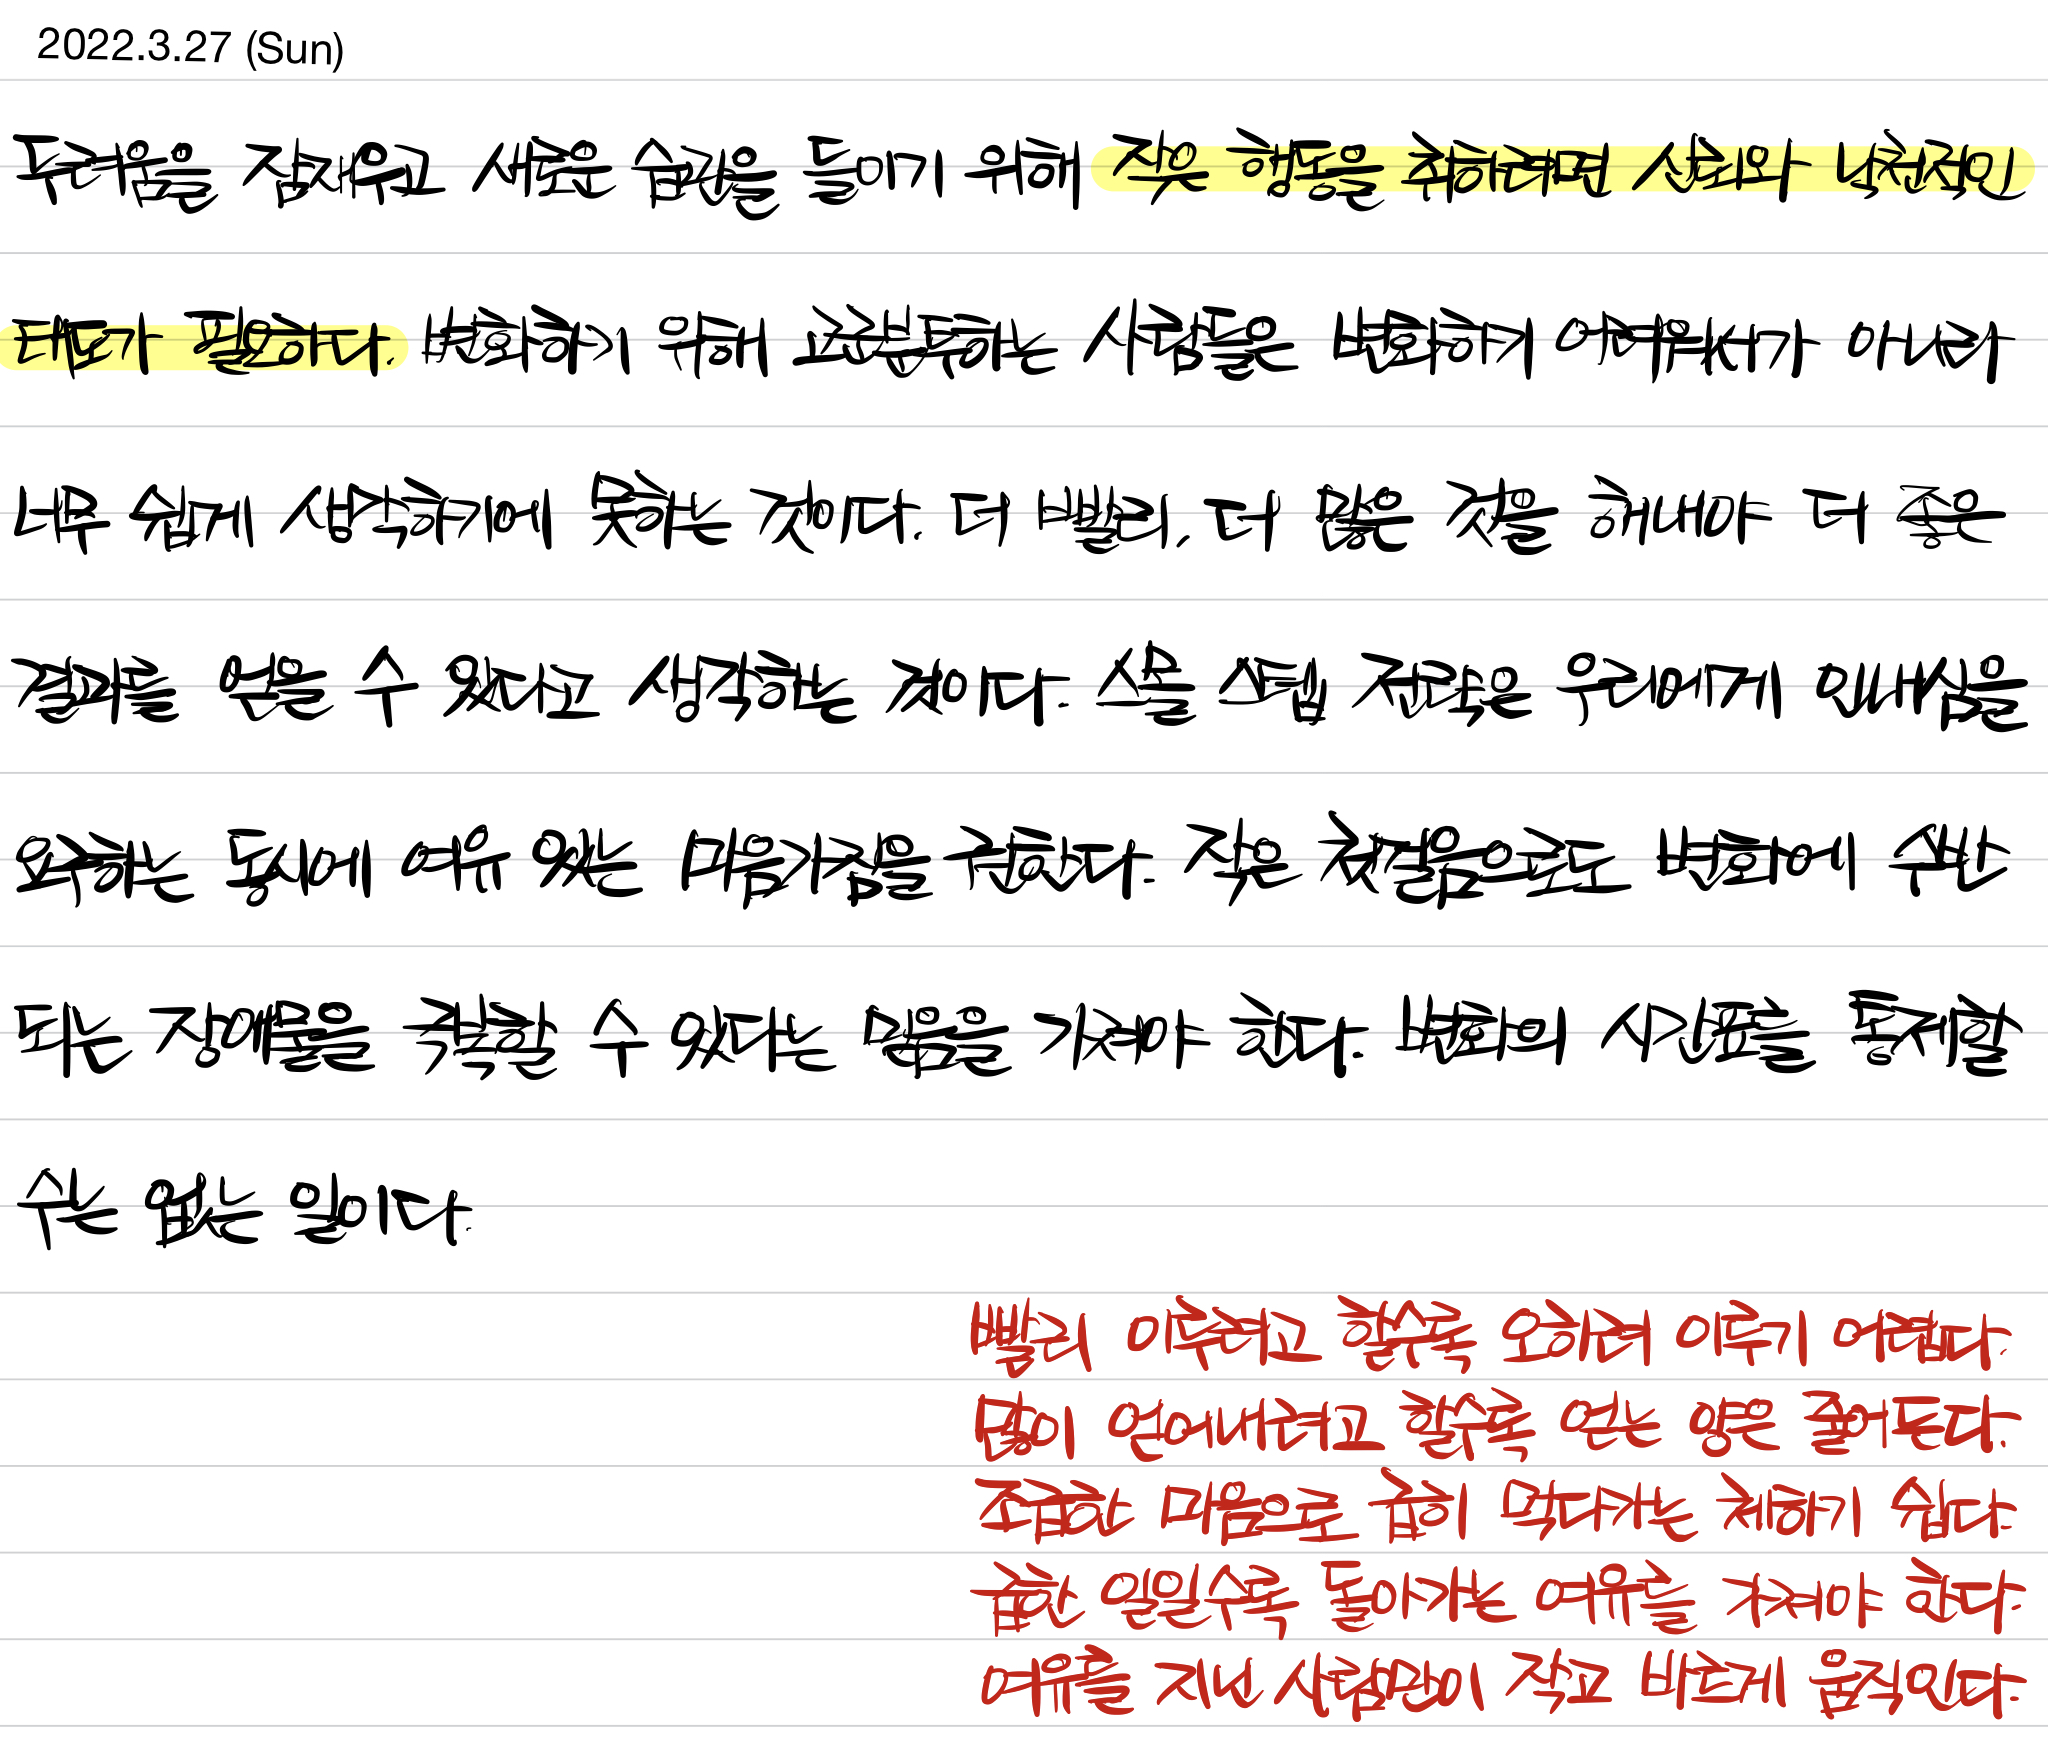 2022.3.27 (Sun)
두려움을 잠재우고 새로운 습관을 들이기 위해 작은 행동을 취하려면 신뢰와 낙천적인
태도가 필요하다. 변화하기 위해 고군분투하는 사람들은 변화하기 어려워서가 아니라
너무 쉽게 생각하기에 못하는 것이다. 더 빨리, 더 많은 것을 해내야 더 좋은
결과를 얻을 수 있다고 생각하는 것이다. 스몰 스텝 전략은 우리에게 인내심을
요구하는 동시에 여유 있는 마음가짐을 권한다. 작은 첫걸음으로도 변화에 수반
되는 장애물을 극복할 수 있다는 믿음을 가져야 한다. 변화의 시간표를 통제할
수는 없는 일이다.
빨리 이루려고 할수록 오히려 이루기 어렵다.
많이 얻어내려고 할수록 얻는 양은 줄어든다.
조급한 마음으로 급히 먹다가는 체하기 쉽다.
급한 일일수록 돌아가는 여유를 가져야 한다.
여유를 지닌 사람만이 작고 바르게 움직인다.